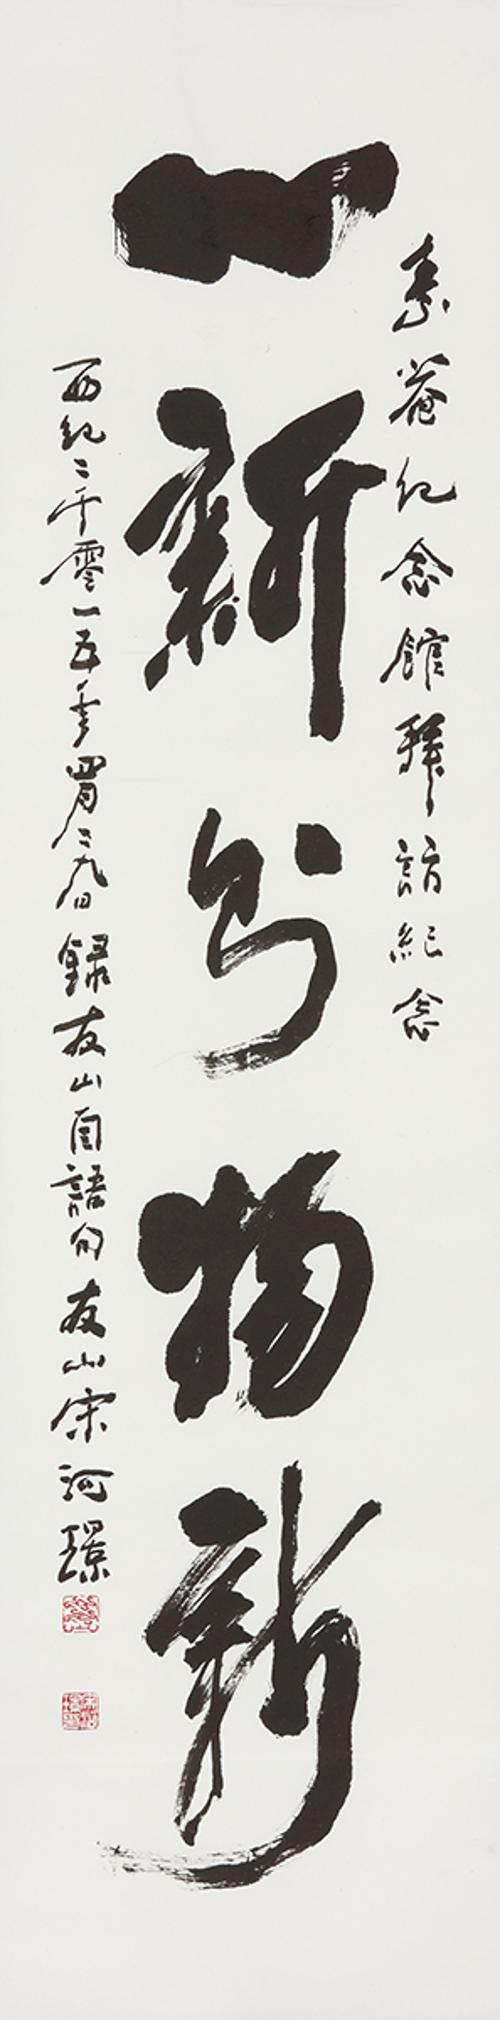 素菴紀念館拜訪紀念
心新則物新
西紀二千零一五年四月二九日錄友山自語句友山宋河璟